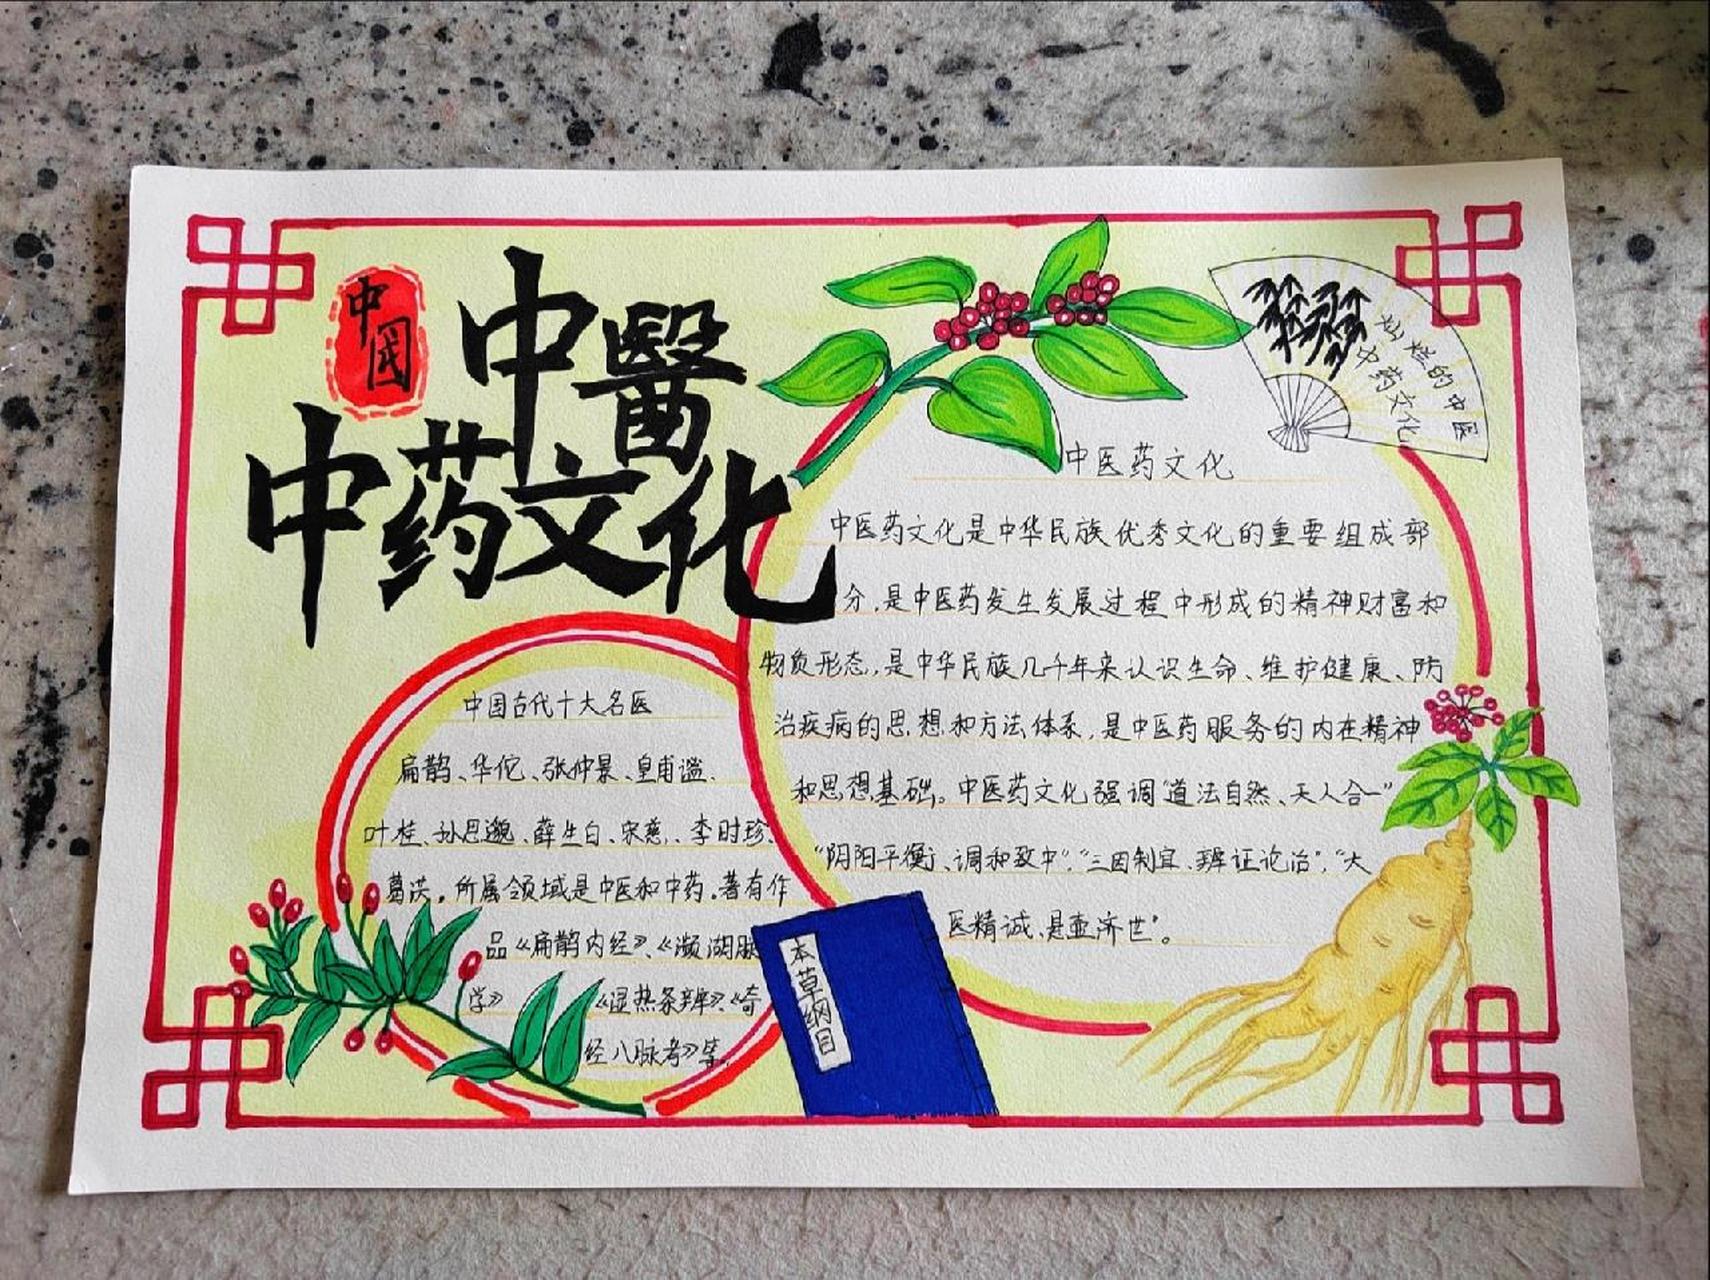 中国
中醫
中药文化
灿烂的中医
中药文化
中医药文化
中医药文化是中华民族优秀文化的重要组成部
分,是中医药发生发展过程中形成的精神财富和
物质形态,是中华民族几千年来认识生命、维护健康、防
治疾病的思想和方法体系,是中医药服务的内在精神
和思想基础。中医药文化强调“道法自然、天人合一”
“阴阳平衡、调和致中”,“三因制宜、辨证论治”,“大
医精诚、悬壶济世”。
中国古代十大名医
扁鹊、华佗、张仲景、皇甫谧、
叶桂、孙思邈、薛生白、宋慈、李时珍、
葛洪。所属领域是中医和中药。著有作
品《扁鹊内经》、《濒湖脉
学》《湿热条辨》、《奇
经八脉考》等。
本草纲目